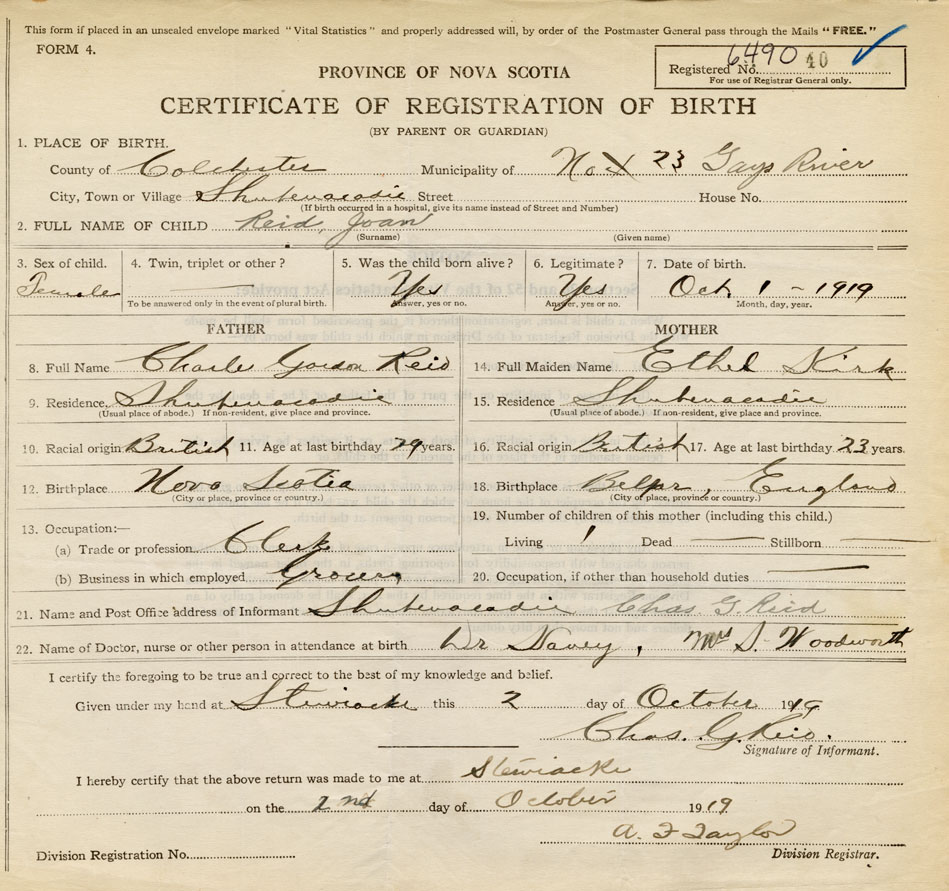 This form if placed in an unsealed envelope marked "Vital Statistics" and properly addressed will, by order of the Postmaster General pass through the Mails "FREE."
FORM 4.
6490 40
Registered No.
For use of Registrar General only.
PROVINCE OF NOVA SCOTIA
CERTIFICATE OF REGISTRATION OF BIRTH
(BY PARENT OR GUARDIAN)
1. PLACE OF BIRTH.
County of Colchester Municipality of No 23 Gays River
City, Town or Village Shubenacadie Street House No.
(If birth occurred in a hospital, give its name instead of Street and Number)
2. FULL NAME OF CHILD Reid, Joan
(Surname) (Given name)
3. Sex of child. 4. Twin, triplet or other? 5. Was the child born alive? 6. Legitimate? 7. Date of birth.
Female Yes Yes Oct 1 - 1919
To be answered only in the event of plural birth. Answer, yes or no. Answer, yes or no. Month, day, year.
FATHER MOTHER
8. Full Name Charles Gordon Reid 14. Full Maiden Name Ethel Kirk
9. Residence Shubenacadie 15. Residence Shubenacadie
(Usual place of abode.) If non-resident, give place and province. (Usual place of abode.) If non-resident, give place and province.
10. Racial origin British 11. Age at last birthday 29 years. 16. Racial origin British 17. Age at last birthday 23 years.
12. Birthplace Nova Scotia 18. Birthplace Belper, England
(City or place, province or country.) (City or place, province or country.)
13. Occupation:— 19. Number of children of this mother (including this child.)
(a) Trade or profession Clerk Living 1 Dead — Stillborn —
(b) Business in which employed Grocery 20. Occupation, if other than household duties —
21. Name and Post Office address of Informant Shubenacadie Chas G. Reid
22. Name of Doctor, nurse or other person in attendance at birth Dr Davey, Mrs S. Woodworth
I certify the foregoing to be true and correct to the best of my knowledge and belief.
Given under my hand at Stewiacke this 2 day of October 1919
Chas. G. Reid.
Signature of Informant.
I hereby certify that the above return was made to me at Stewiacke
on the 2nd day of October 1919
A. F Taylor
Division Registration No. Division Registrar.